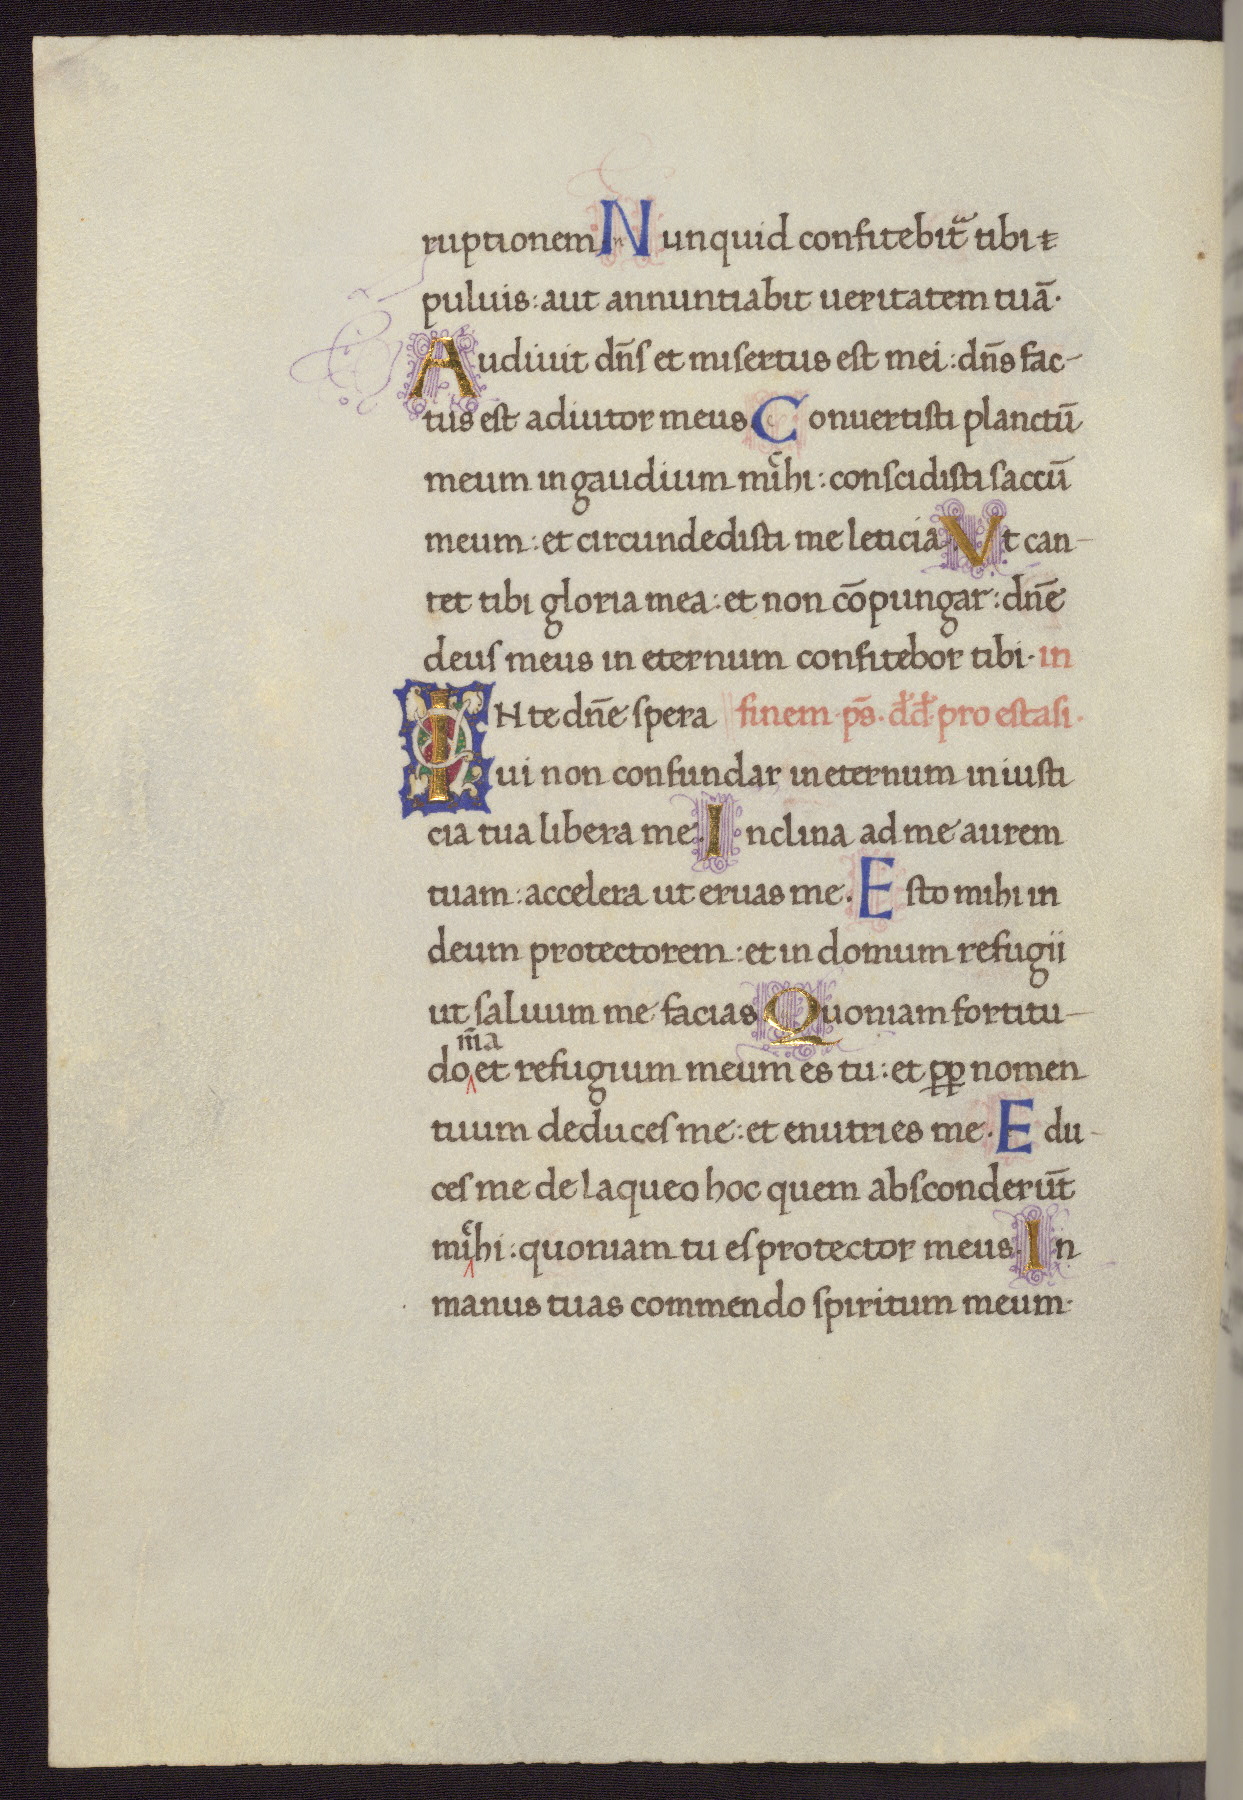 ruptionem Nunquid confitebit᷑ tibi ŧ
puluis: aut annuntiabit ueritatem tuā.
Audiuit dn̄s et misertus est mei: dn̄s fac-
tus est adiutor meus Conuertisti planctū
meum in gaudium mic̉hi: conscidisti saccū
meum: et circundedisti me leticia. Vt can-
tet tibi gloria mea: et non cōpungar: dn̄e
deus meus in eternum confitebor tibi. in
IN te dn̄e spera finem ps̄. dd̄ pro estasi.
ui non confundar in eternum in iusti
cia tua libera me. Inclina ad me aurem
tuam: accelera ut eruas me. Esto mihi in
deum protectorem: et in domum refugii
ut saluum me facias Quoniam fortitu-
m̄a
do et refugium meum es tu: et ꝓꝑ nomen
tuum deduces me: et enutries me. Edu-
ces me de laqueo hoc quem absconderūt
mic̉hi: quoniam tu es protector meus. In
manus tuas commendo spiritum meum.